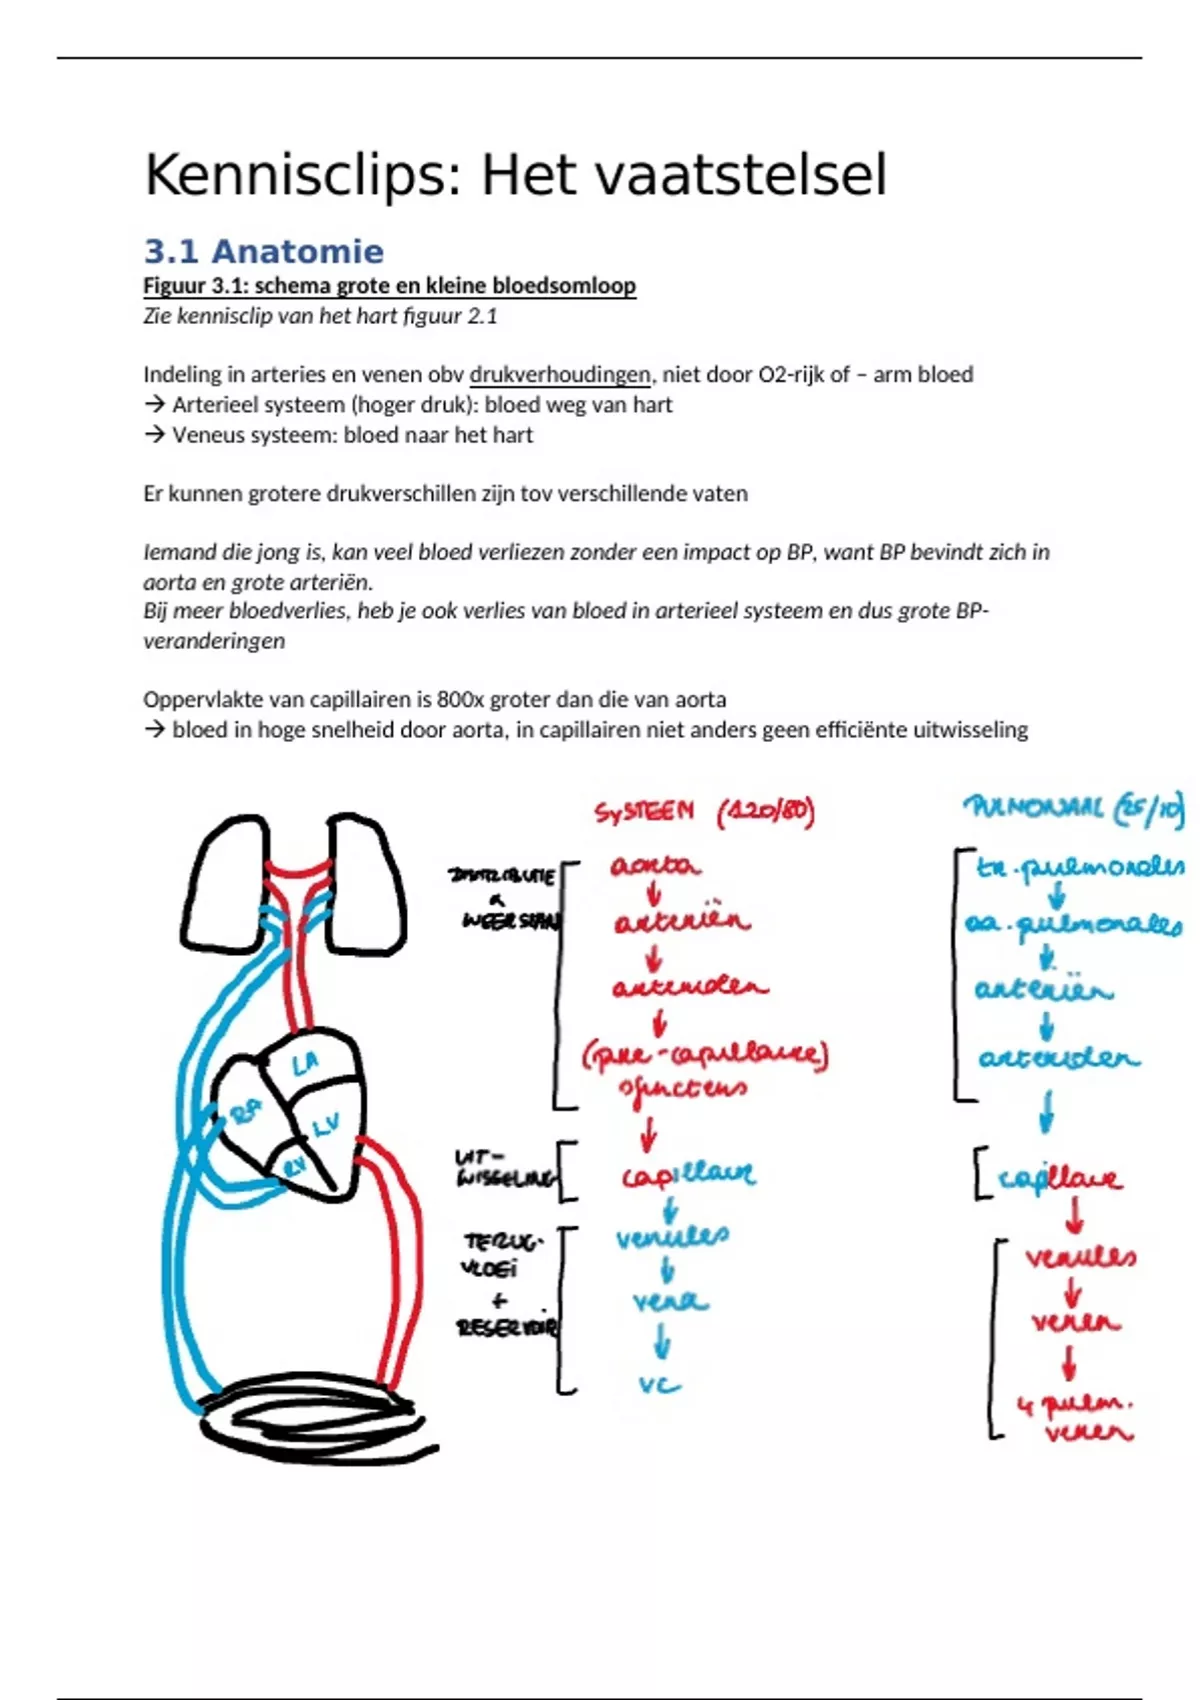 Kennisclips: Het vaatstelsel
3.1 Anatomie
Figuur 3.1: schema grote en kleine bloedsomloop
Zie kennisclip van het hart figuur 2.1
Indeling in arteries en venen obv drukverhoudingen, niet door O2-rijk of – arm bloed
→ Arterieel systeem (hoger druk): bloed weg van hart
→ Veneus systeem: bloed naar het hart
Er kunnen grotere drukverschillen zijn tov verschillende vaten
Iemand die jong is, kan veel bloed verliezen zonder een impact op BP, want BP bevindt zich in
aorta en grote arteriën.
Bij meer bloedverlies, heb je ook verlies van bloed in arterieel systeem en dus grote BP-
veranderingen
Oppervlakte van capillairen is 800x groter dan die van aorta
→ bloed in hoge snelheid door aorta, in capillairen niet anders geen efficiënte uitwisseling
LA
RA
LV
RV
DISTRIBUTIE
&
WEERSTAND
UIT-
WISSELING
TERUG-
VLOEI
+
RESERVOIR
SYSTEEM (120/80)
aorta
↓
arteriën
↓
arteriolen
↓
(pre-capillaire)
sfincters
↓
capillair
↓
venules
↓
vena
↓
VC
PULMONAAL (25/10)
tr. pulmonales
↓
aa. pulmonales
↓
arteriën
↓
arteriolen
↓
capillair
↓
venules
↓
venen
↓
4 pulm.
venen